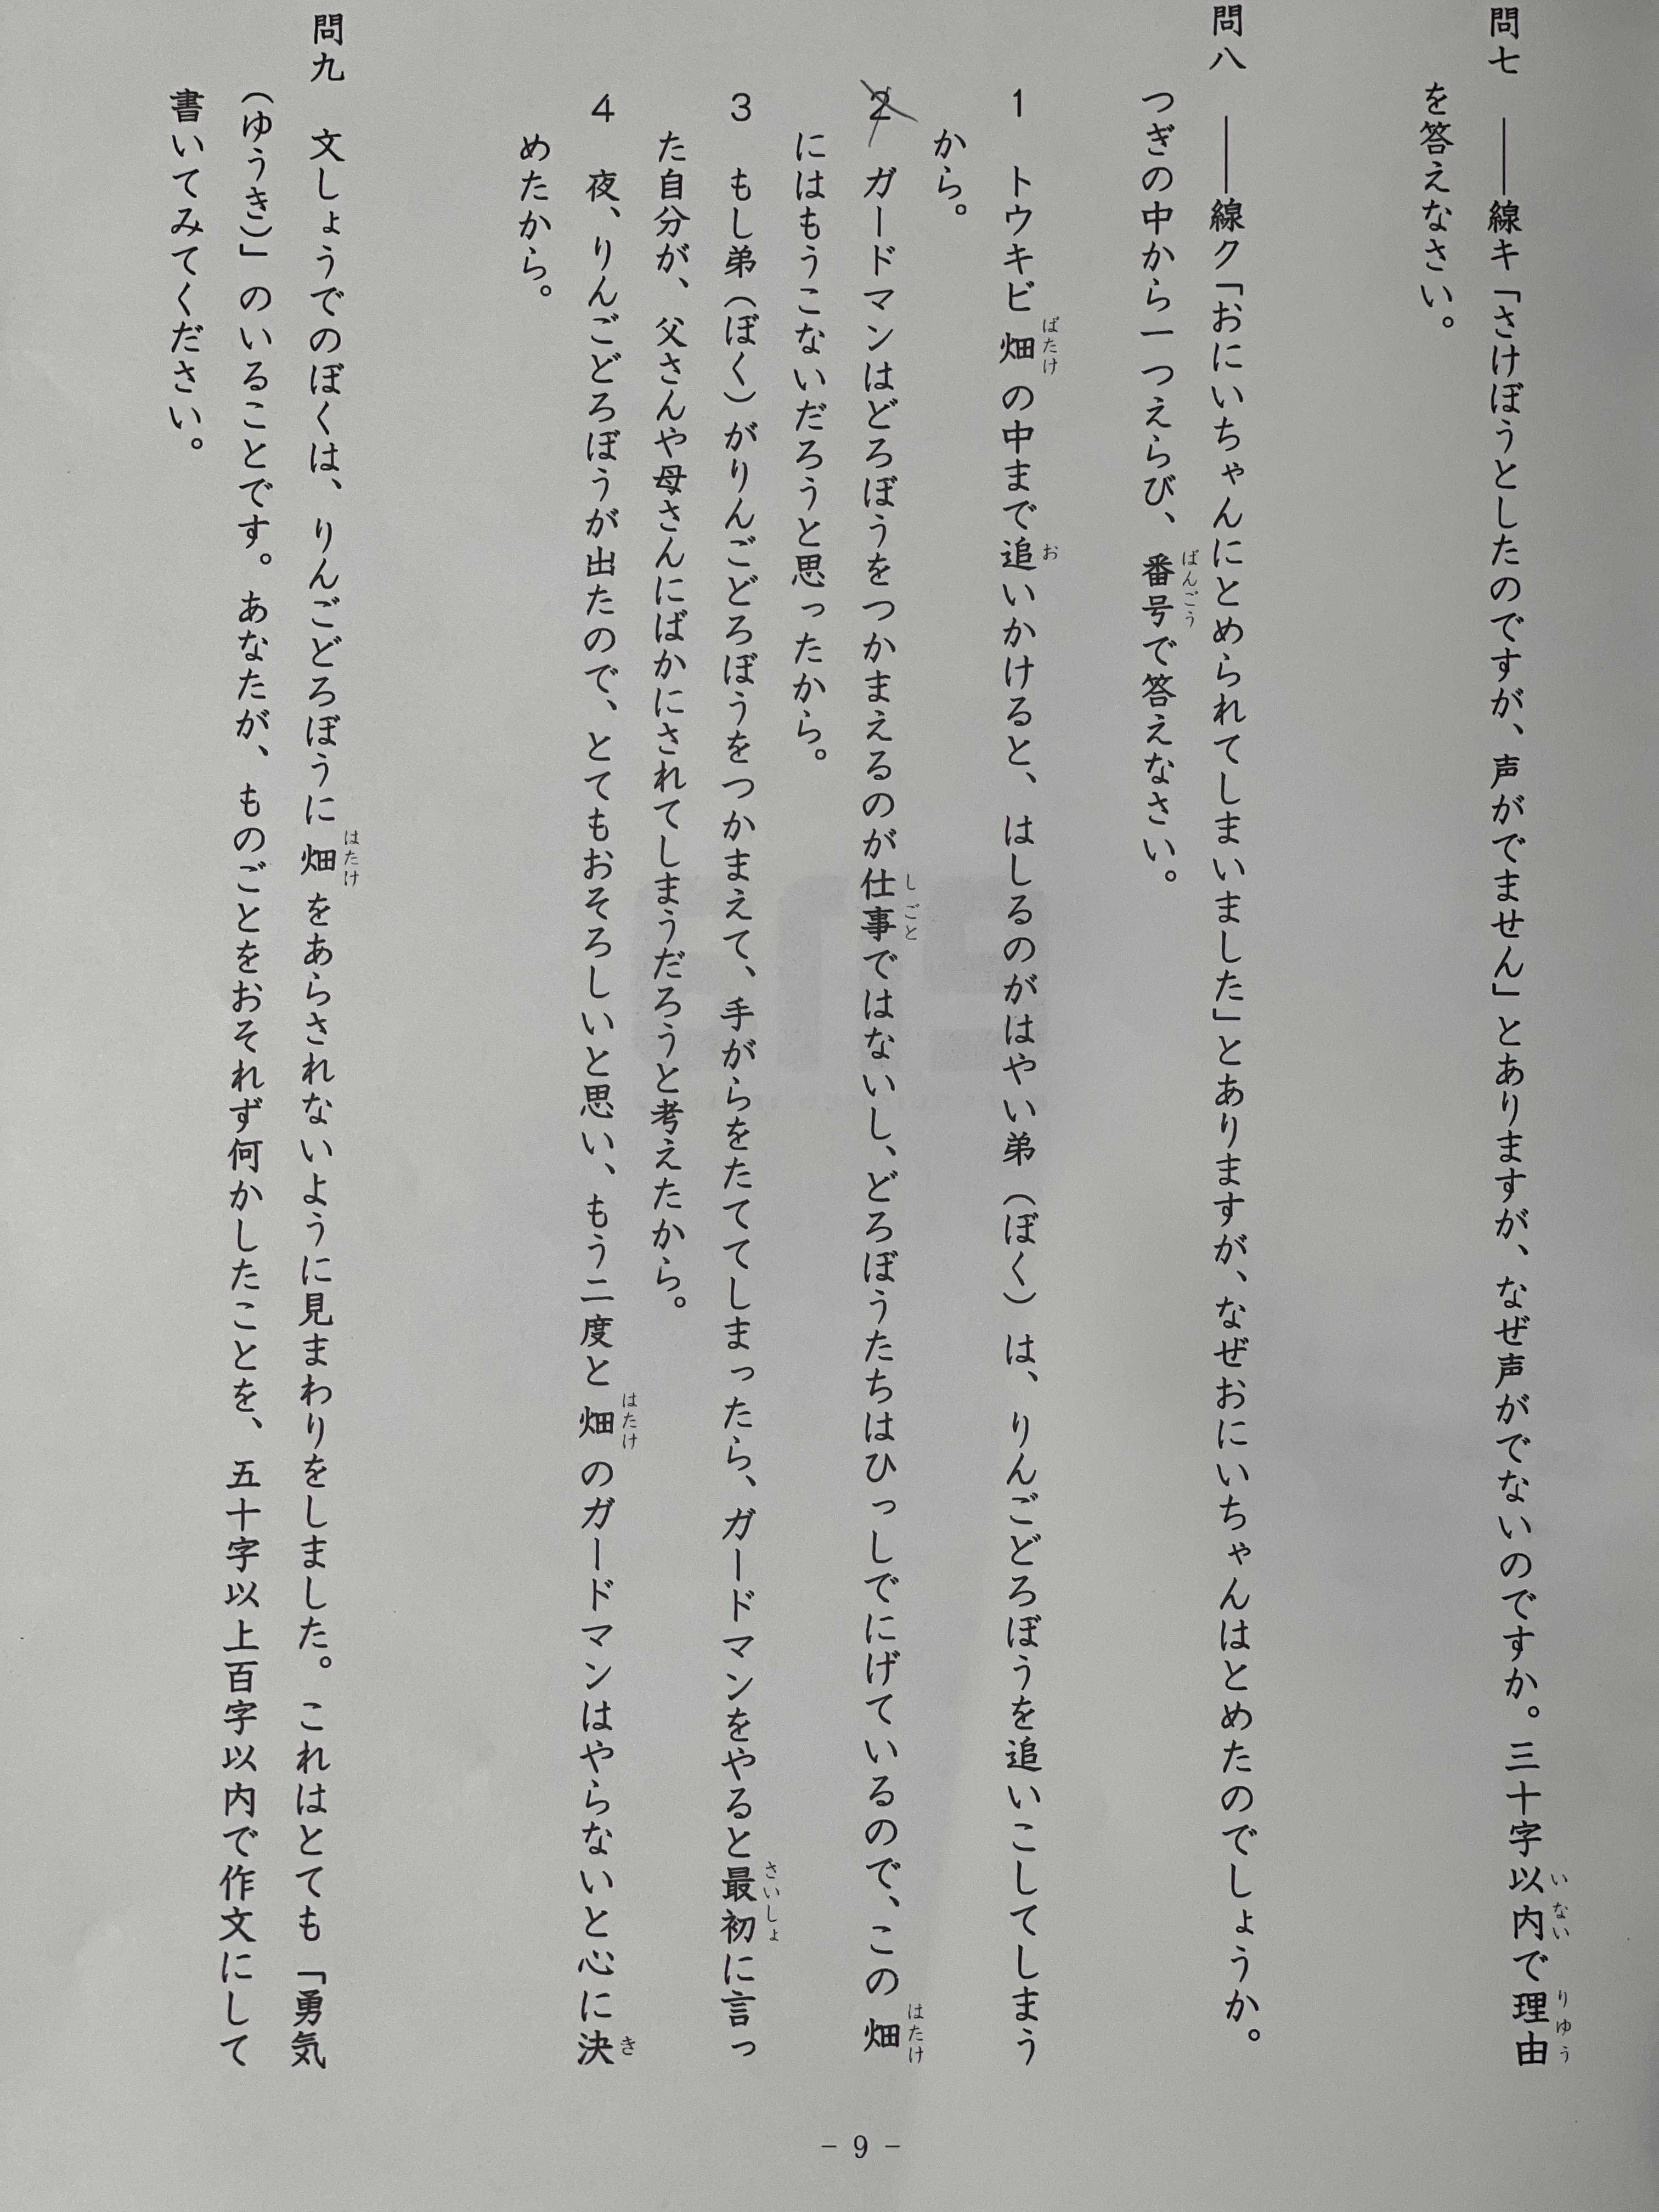 問七　――線キ「さけぼうとしたのですが、声がでません」とありますが、なぜ声がでないのですか。三十字以内で理由
を答えなさい。
問八　――線ク「おにいちゃんにとめられてしまいました」とありますが、なぜおにいちゃんはとめたのでしょうか。
つぎの中から一つえらび、番号で答えなさい。
1　トウキビ畑の中まで追いかけると、はしるのがはやい弟（ぼく）は、りんごどろぼうを追いこしてしまう
から。
2　ガードマンはどろぼうをつかまえるのが仕事ではないし、どろぼうたちはひっしでにげているので、この畑
にはもうこないだろうと思ったから。
3　もし弟（ぼく）がりんごどろぼうをつかまえて、手がらをたててしまったら、ガードマンをやると最初に言っ
た自分が、父さんや母さんにばかにされてしまうだろうと考えたから。
4　夜、りんごどろぼうが出たので、とてもおそろしいと思い、もう二度と畑のガードマンはやらないと心に決
めたから。
問九　文しょうでのぼくは、りんごどろぼうに畑をあらされないように見まわりをしました。これはとても「勇気
（ゆうき）」のいることです。あなたが、ものごとをおそれず何かしたことを、五十字以上百字以内で作文にして
書いてみてください。
- 9 -